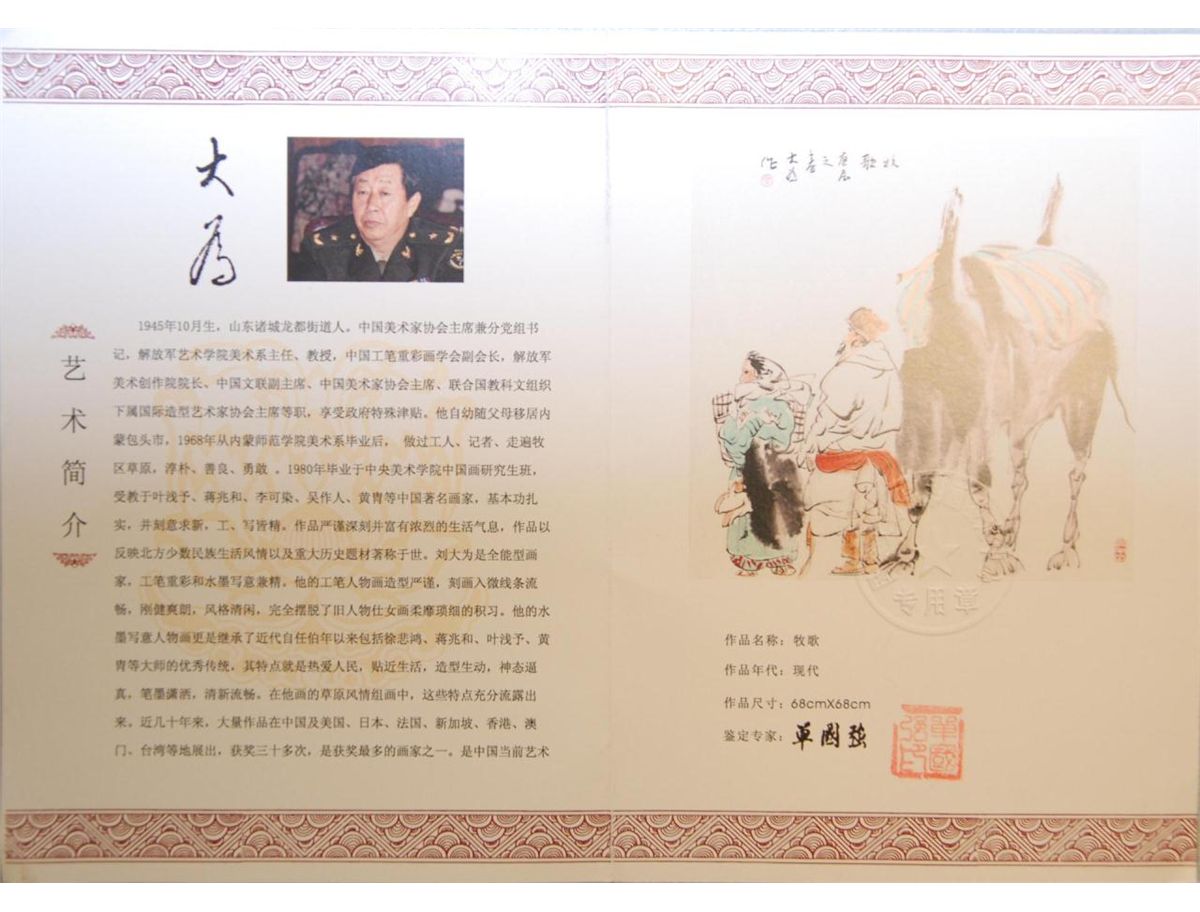 大为
艺术简介
1945年10月生，山东诸城龙都街道人。中国美术家协会主席兼分党组书
记，解放军艺术学院美术系主任、教授，中国工笔重彩画学会副会长，解放军
美术创作院院长、中国文联副主席、中国美术家协会主席、联合国教科文组织
下属国际造型艺术家协会主席等职，享受政府特殊津贴。他自幼随父母移居内
蒙包头市，1968年从内蒙师范学院美术系毕业后， 做过工人、记者、走遍牧
区草原，淳朴、善良、勇敢 。1980年毕业于中央美术学院中国画研究生班，
受教于叶浅予、蒋兆和、李可染、吴作人、黄胄等中国著名画家，基本功扎
实，并刻意求新，工、写皆精。作品严谨深刻并富有浓烈的生活气息，作品以
反映北方少数民族生活风情以及重大历史题材著称于世。刘大为是全能型画
家，工笔重彩和水墨写意兼精，他的工笔人物画造型严谨，刻画入微线条流
畅，刚健爽朗，风格清闲，完全摆脱了旧人物仕女画柔靡琐细的积习。他的水
墨写意人物画更是继承了近代自任伯年以来包括徐悲鸿、蒋兆和、叶浅予、黄
胄等大师的优秀传统，其特点就是热爱人民，贴近生活，造型生动，神态逼
真，笔墨潇洒，清新流畅。在他画的草原风情组画中，这些特点充分流露出
来。近几十年来，大量作品在中国及美国、日本、法国、新加坡、香港、澳
门、台湾等地展出，获奖三十多次，是获奖最多的画家之一。是中国当前艺术
牧歌
大为
作
专用章
作品名称：牧歌
作品年代：现代
作品尺寸：68cmX68cm
鉴定专家：单国强
单国强印